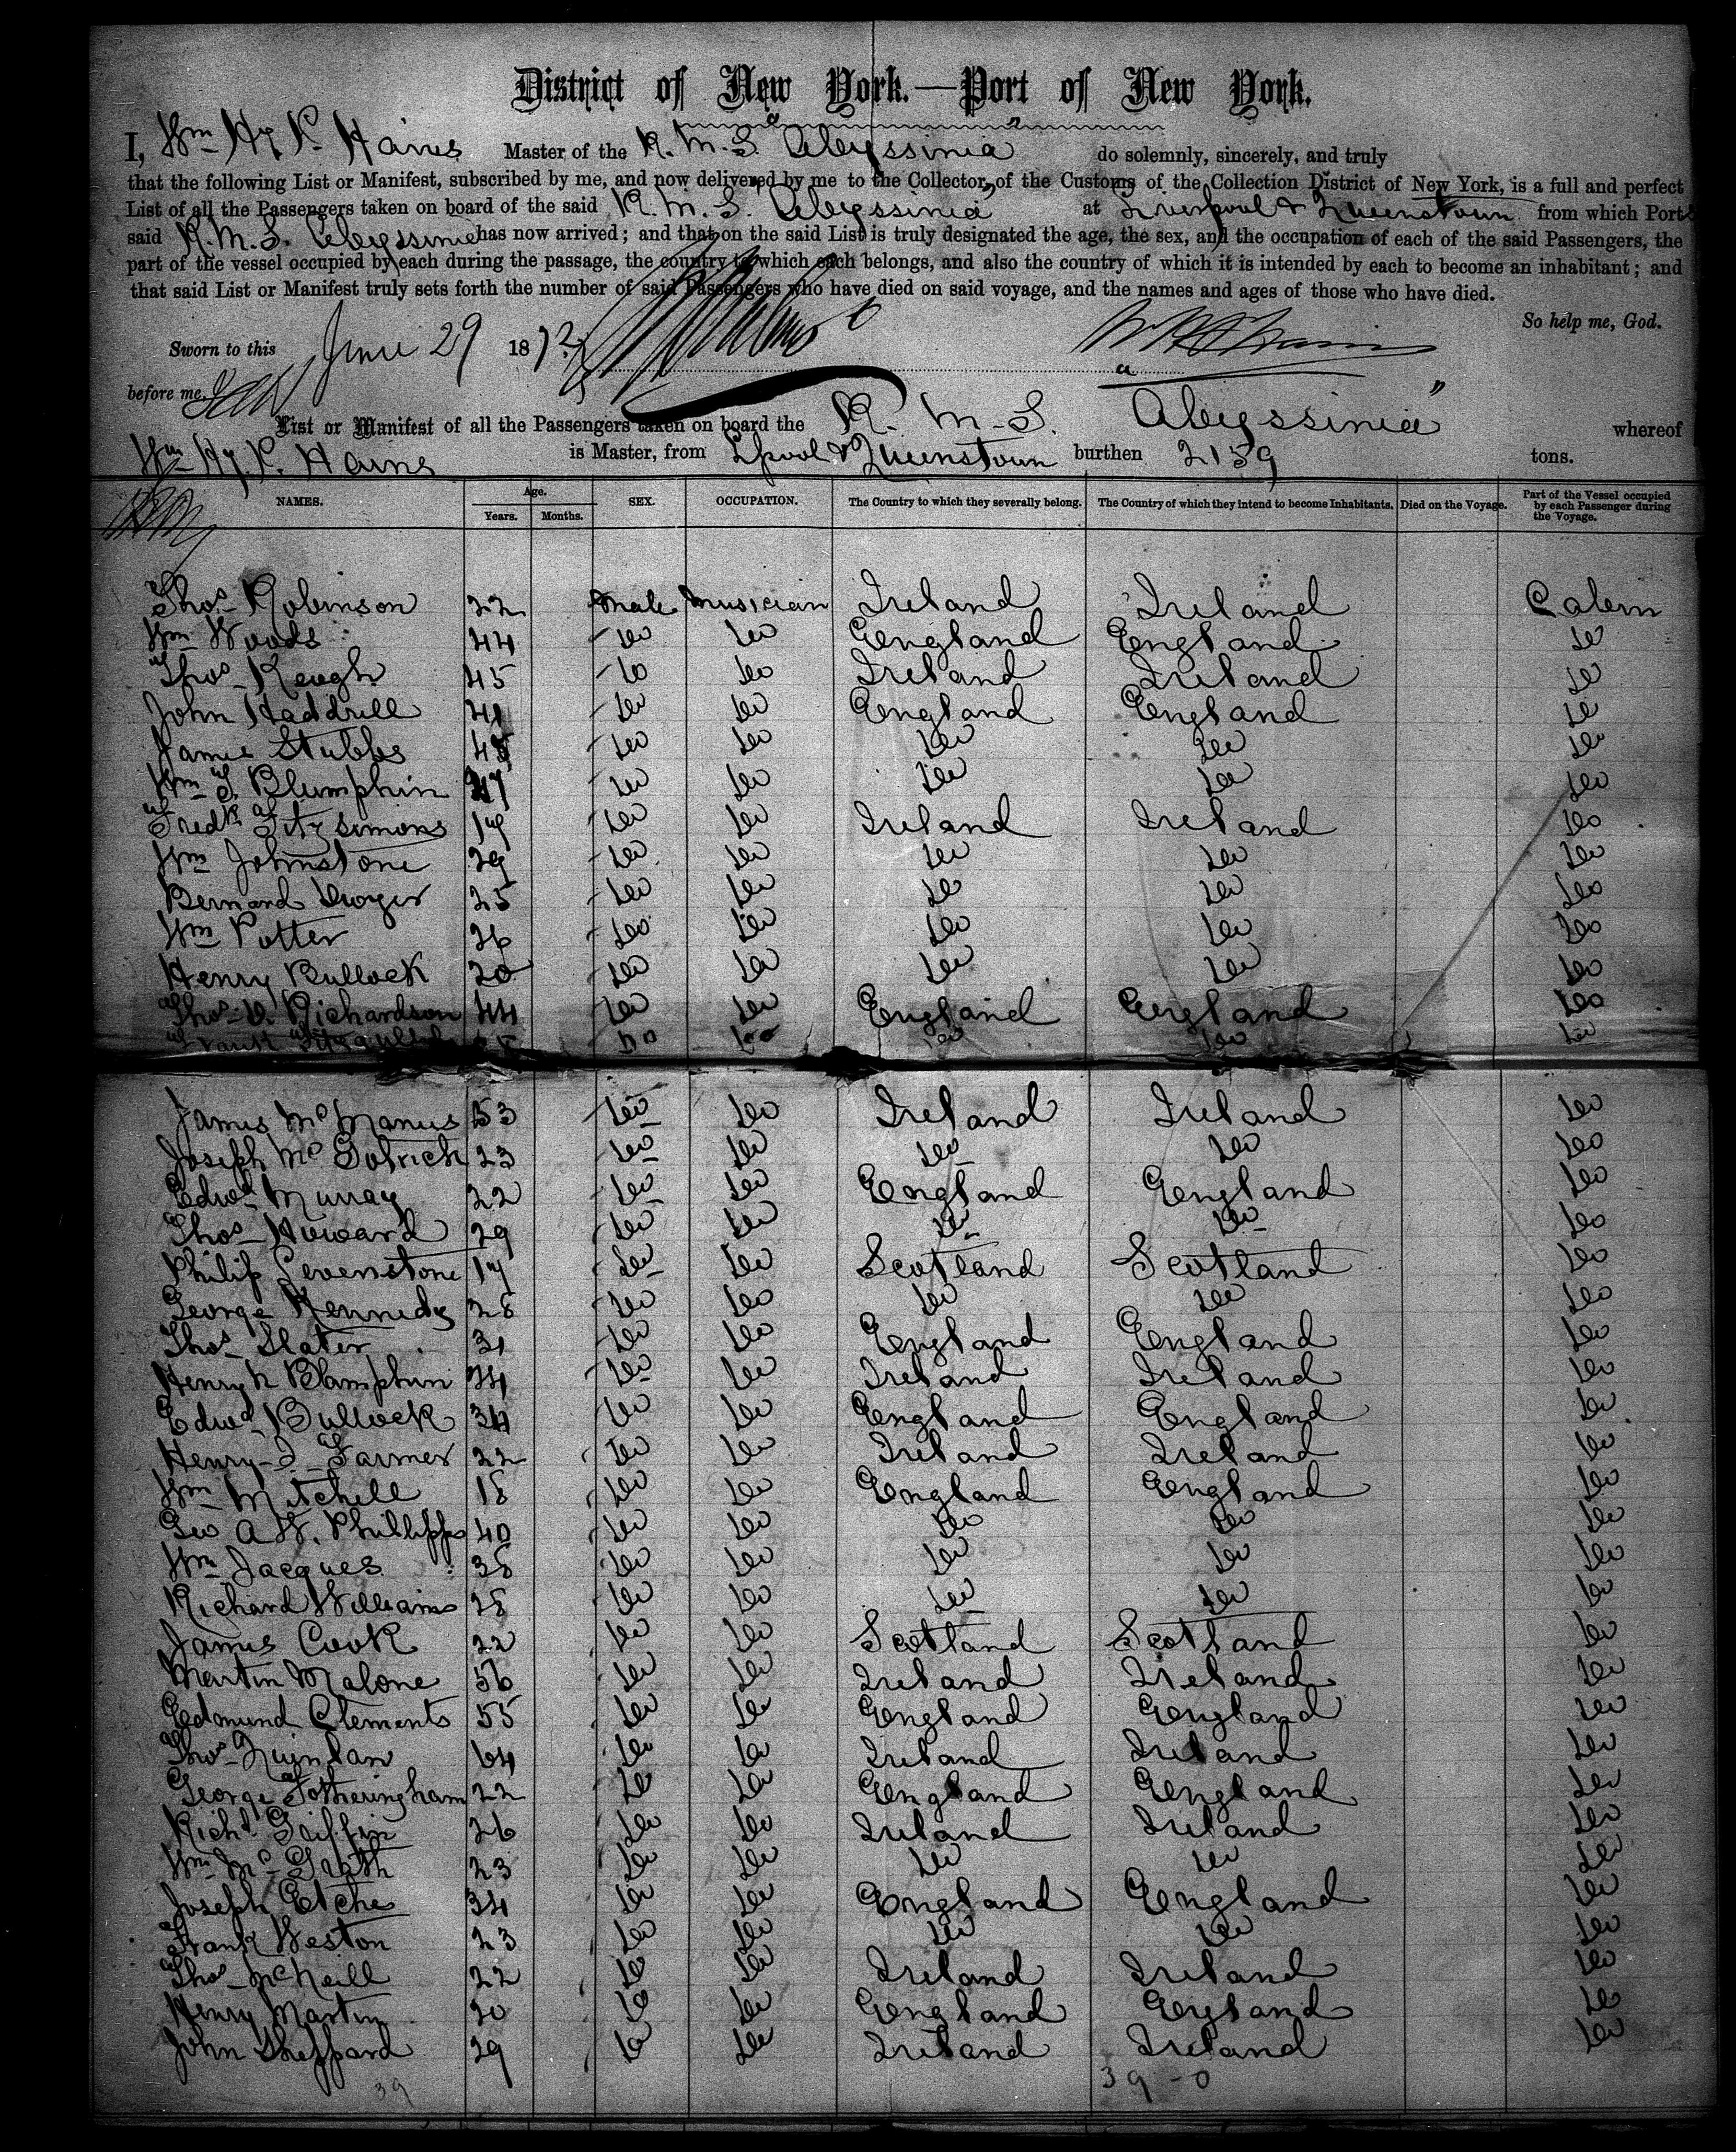 District of New York.—Port of New York.
I, Wm Hy P. Hains Master of the R. M. S. Abyssinia do solemnly, sincerely, and truly
that the following List or Manifest, subscribed by me, and now delivered by me to the Collector of the Customs of the Collection District of New York, is a full and perfect
List of all the Passengers taken on board of the said R. M. S. "Abyssinia" at Liverpool & Queenstown from which Port
said R. M. S. Abyssinia has now arrived; and that on the said List is truly designated the age, the sex, and the occupation of each of the said Passengers, the
part of the vessel occupied by each during the passage, the country to which each belongs, and also the country of which it is intended by each to become an inhabitant; and
that said List or Manifest truly sets forth the number of said Passengers who have died on said voyage, and the names and ages of those who have died.
So help me, God.
Sworn to this June 29 1872
before me,
List or Manifest of all the Passengers taken on board the R. M. S. Abyssinia" whereof
Wm Hy. P. Hains is Master, from Lpool & Queenstown burthen 2159 tons.
NAMES. Age. Years. Months. SEX. OCCUPATION. The Country to which they severally belong. The Country of which they intend to become Inhabitants. Died on the Voyage. Part of the Vessel occupied by each Passenger during the Voyage.
Thos Robinson 22 Male Musician Ireland Ireland Cabin
Wm Woods 44 do do England England do
Thos Keogh 45 do do Ireland Ireland do
John Haddrill 41 do do England England do
James Stubbs do do do do do
Wm J. Blumphin do do do do do
Fredk Fitzsimons 19 do do Ireland Ireland do
Wm Johnstone 29 do do do do do
Bernard Dwyer 25 do do do do do
Wm Potter 26 do do do do do
Henry Bullock 20 do do do do do
Thos V. Richardson 44 do do England England do
Frank do do do do do
James McManus 53 do do Ireland Ireland do
Joseph McGolrick 23 do do do do do
Edwd Murray 22 do do England England do
Thos Howard 29 do do do do do
Philip Levenstone 17 do do Scotland Scotland do
George Kennedy 28 do do do do do
Thos Slater 31 do do England England do
Henry N Blamphin 34 do do Ireland Ireland do
Edwd Bullock 34 do do England England do
Henry J Farmer 22 do do Ireland Ireland do
Wm Mitchell 18 do do England England do
Geo A W. Phillipps 40 do do do do do
Wm Jacques 38 do do do do do
Richard Williams 28 do do do do do
James Cook 22 do do Scotland Scotland do
Martin Malone 56 do do Ireland Ireland do
Edmund Clements 55 do do England England do
Thos Quinlan 64 do do Ireland Ireland do
George Fotheringham 22 do do England England do
Richd Griffin 26 do do Ireland Ireland do
Wm McGrath 23 do do do do do
Joseph Etche 34 do do England England do
Frank Weston 23 do do do do do
Thos McNeill 22 do do Ireland Ireland do
Henry Martin 20 do do England England do
John Sheppard 29 do do Ireland Ireland do
39 39-0